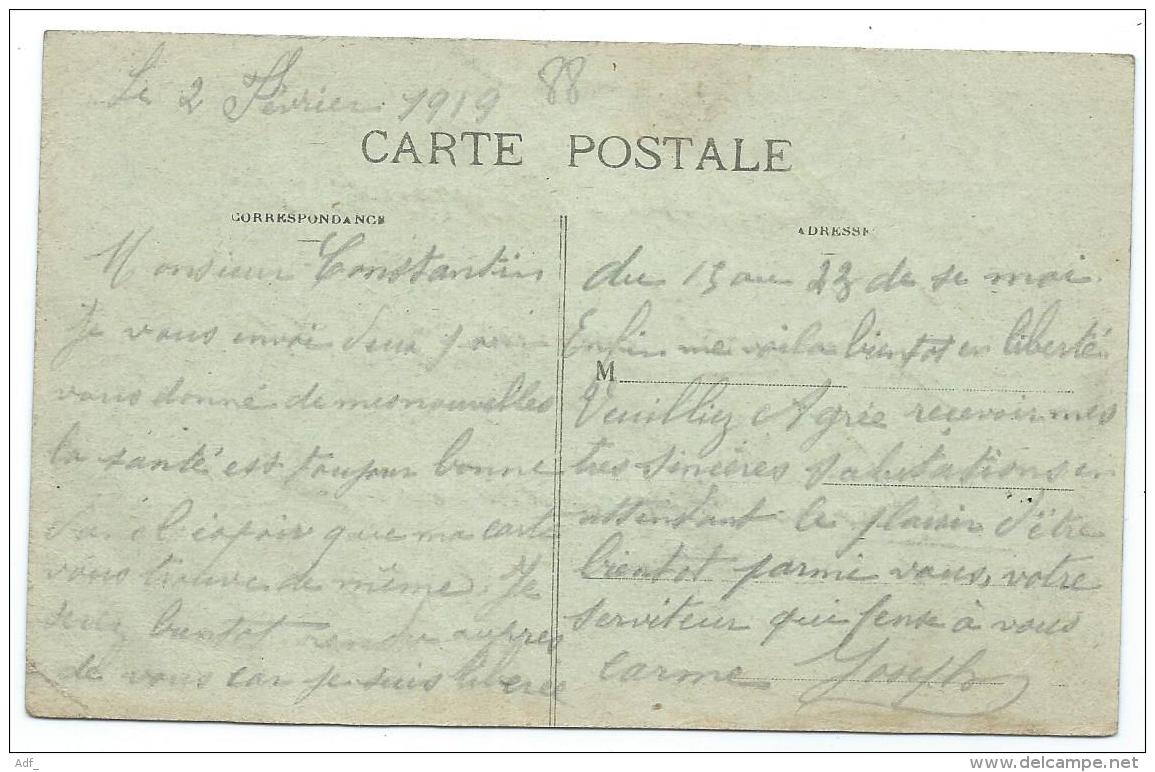 Le 2 Février 1919
88
CARTE POSTALE
CORRESPONDANCE
Monsieur Constantin
Je vous envoi deux
vous donné de mes nouvelles
la santé est toujour bonne
J'ai l'éspoir que ma carte
vous trouve de même. Je
serez bientot rendu aupres
de vous car je suis liberée
ADRESSE
du 15 au 23 de se moi.
Enfin me voila bientot en liberté
M
Veuilliez Agrée recevoir mes
tres sincères salutations en
attendant le plaisir d'être
bientot parmi vous, votre
serviteur qui pense à vous
Carme Joseph
Adf_
delcampe.net